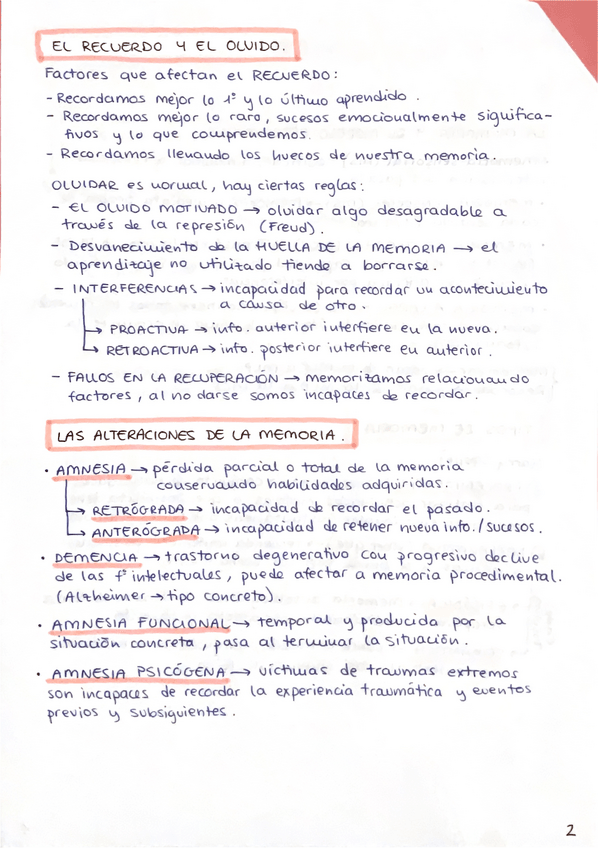 EL RECUERDO Y EL OLVIDO.
Factores que afectan el RECUERDO:
- Recordamos mejor lo 1º y lo último aprendido.
- Recordamos mejor lo raro, sucesos emocionalmente significa-
tivos y lo que comprendemos.
- Recordamos llenando los huecos de nuestra memoria.
OLVIDAR es normal, hay ciertas reglas:
- EL OLVIDO MOTIVADO → olvidar algo desagradable a
través de la represión (Freud).
- Desvanecimiento de la HUELLA DE LA MEMORIA → el
aprendizaje no utilizado tiende a borrarse.
- INTERFERENCIAS → incapacidad para recordar un acontecimiento
a causa de otro.
→ PROACTIVA → info. anterior interfiere en la nueva.
→ RETROACTIVA → info. posterior interfiere en anterior.
- FALLOS EN LA RECUPERACIÓN → memorizamos relacionando
factores, al no darse somos incapaces de recordar.
LAS ALTERACIONES DE LA MEMORIA.
· AMNESIA → pérdida parcial o total de la memoria
conservando habilidades adquiridas.
→ RETRÓGRADA → incapacidad de recordar el pasado.
→ ANTERÓGRADA → incapacidad de retener nueva info./sucesos.
· DEMENCIA → trastorno degenerativo con progresivo declive
de las fº intelectuales, puede afectar a memoria procedimental.
(Alzheimer → tipo concreto).
· AMNESIA FUNCIONAL → temporal y producida por la
situación concreta, pasa al terminar la situación.
· AMNESIA PSICÓGENA → víctimas de traumas extremos
son incapaces de recordar la experiencia traumática y eventos
previos y subsiguientes.
2